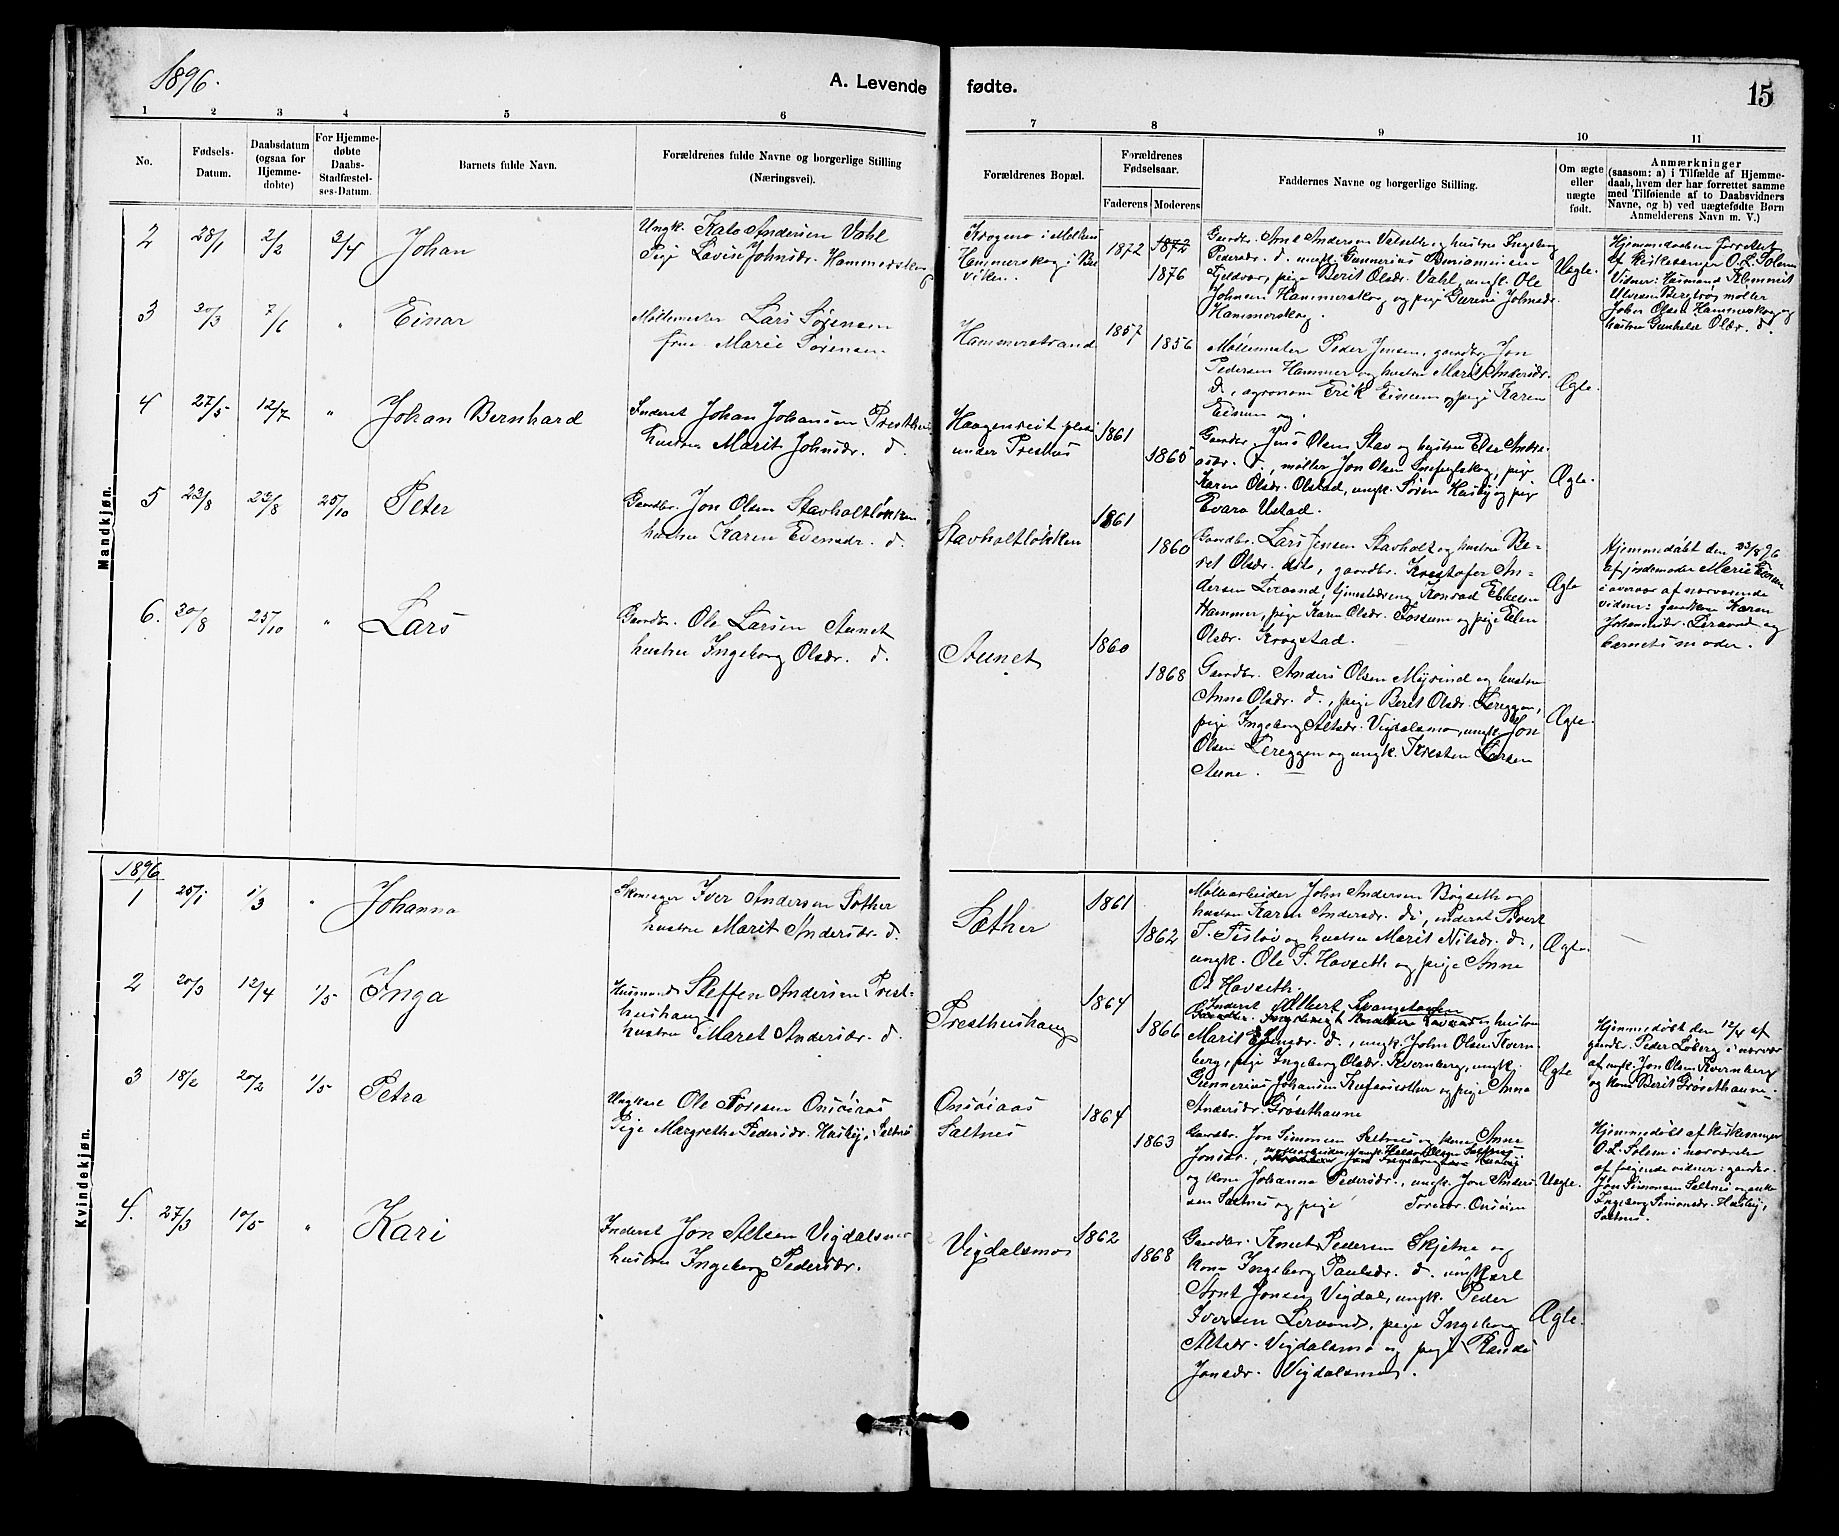 1896.
A. Levende
fødte.
15
1 2 3 4 5 6 7 8 9 10 11
No.
Fødsels-
Datum.
Daabsdatum
(ogsaa for
Hjemme-
døbte)
For Hjemme-
døbte
Daabs-
Stadfæstel-
ses-Datum.
Barnets fulde Navn.
Forældrenes fulde Navne og borgerlige Stilling
(Næringsvei).
Forældrenes Bopæl.
Forældrenes
Fødselsaar.
Faderens Moderens
Faddernes Navne og borgerlige Stilling.
Om ægte
eller
uægte
født.
Anmærkninger
(saasom: a) i Tilfælde af Hjemme-
daab, hvem der har forrettet samme
med Tilføiende af to Daabsvidners
Navne, og b) ved uægtefødte Børn
Anmelderens Navn m. V.)
Mandkjøn.
2 28/1 2/2 3/4 Johan
Ungk. Kato Andersen Vahl
Pige Lovise Johnsdr. Hammerskog
Hammerskog i Bu-
viken.
1872 1872
1876
Gaardbr. Arnt Andersen Valselle og hustru Ingeborg
Pedersdr. d. ungk. Gunnerius Benjaminsen
Fjeldvær, pige Berit Olsdr. Vahl, ungk. Ole
Johnsen Hammerskog og pige Gurine Johnsdr.
Hammerskog.
Uægte.
Hjemmedaaben forrettet
af kirkesanger O. L. Solem
Vidner: Husmand Klemmet
Ulvsen Bergtrøs møller
John Olsen Hammerskog og
hustru Gunhild Olsdr. d.
3 20/3 7/6 " Einar
Møllemester Lars Sørensen
frue Marie Sørensen
Hammerstrand
1857
1856
Møllemester Peder Jensen, gaardbr. Jon
Pedersen Hammer og hustru Marit Andersdr.
d., agronom Erik Eidsum og pige Karen
Ægte.
4 27/5 12/7 " Johan Bernhard
Inderst Johan Johansen Presthus
hustru Marit Johnsdr. d.
Haagenreit plads
under Presthus
1861
1865
Gaardbr. Jens Olsen Stav og hustru Else Andre-
asdr. d., møller Jon Olsen
Karen Olsdr. Olstad, ungk. Søren Husby og pige
Evara Ustad.
Ægte.
5 23/8 23/8 25/10 Peter
Gaardbr. Jon Olsen Stavholtløkken
hustru Karen Evensdr. d.
Stavholtløkken
1861
1860
Gaardbr. Lars Jensen Stavholt og hustru Be-
ret Olsdr. dito, gaardbr. Kristofer An-
dersen Leraand, tjenestedreng Konrad Ebbesen
Hammer, pige Karen Olsdr. Fossum og pige Elen
Olsdr. Krogstad.
Ægte
Hjemmedøbt den 23/8 96
af jordemoder Marie
i overvær af nærværende
vidner: gaardkone Karen
Johannesdr. Leraand og
barnets moder.
6. 30/8 25/10 " Lars
Gaardbr. Ole Larsen Aunet
hustru Ingeborg Olsdr. d.
Aunet
1860
1868
Gaardbr. Anders Olsen Myrind og hustru
Anne Olsdr. d., pige Berit Olsdr. Lereggen,
pige Ingeborg Altsdr. Vigdalsmo, ungk. Jon
Olsen Lereggen og ungk. Kresten Larsen
Aune.
Ægte.
1896
Kvindekjøn.
1 25/1 1/3 " Johanna
Skomager Iver Andersen Sæther
hustru Marit Andersdr. d.
Sæther
1861
1862
Møllearbeider John Andersen Bøgseth og
hustru Karen Andersdr. d., inderst Sivert
T. Tisløv og hustru Marit Nilsdr. d.,
ungk. Ole S. Havseth og pige Anne
O. Havseth.
Ægte.
2 20/3 12/4 1/5 Inga
Husmand Steffen Andersen Prest-
hushaug
hustru Maret Andersdr. d.
Presthushaug
1864
1866
Inderst Albert Svangstaden
og hustru
Marit Evensdr. d., ungk. John Olsen Kvern-
berg, pige Ingeborg Olsdr. Kvernberg, ungk.
Gunnerius Johansen Krufsosæther og pige Anna
Andersdr. Grøsethaune
Ægte
Hjemmedøbt den 12/4 af
gaardbr. Peder Løberg i nærvær
af ungk. Jon Olsen Kvernberg
og kone Berit Grøsethaune.
3 18/2 20/2 1/5 Petra
Ungkarl Ole Toresen Onsøiaas
Pige Margrethe Pedersdr. Husby, Saltnes
Onsøiaas
Saltnes
1864
1863
Gaardbr. Jon Simonsen Saltnes og kone Anne
Jonsdr.,
og kone Johanna Pedersdr., ungk. Jon Anders-
sen Saltnes og pige Toresdr. Onsøien
Uægte.
Hjemmedøbt af kirkesanger
O. L. Solem i nærværelse
af følgende vidner: gaardbr.
Jon Simonsen Saltnes og enke
Ingeborg Simonsdr. Husby,
Saltnes.
4. 27/3 10/5 " Kari
Inderst Jon Altsen Vigdalsmo
hustru Ingeborg Pedersdr.
Vigdalsmo
1862
1868
Gaardbr. Knut Pedersen Skjetne og
kone Ingeborg Paulsdr. d. ungkarl
Arnt Jonsen Vigdal, ungk. Peder
Iversen Leraand, pige Ingeborg
Altsdr. Vigdalsmo og pige Randi
Jonsdr. Vigdalsmo.
Ægte.